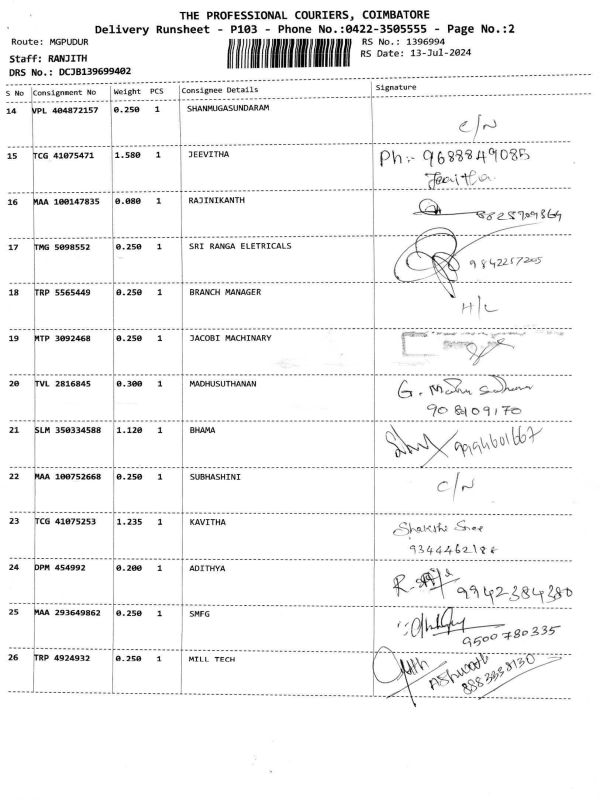 THE PROFESSIONAL COURIERS, COIMBATORE
Delivery Runsheet - P103 - Phone No.:0422-3505555 - Page No.:2
Route: MGPUDUR RS No.: 1396994
Staff: RANJITH RS Date: 13-Jul-2024
DRS No.: DCJB139699402
S No Consignment No Weight PCS Consignee Details Signature
14 VPL 404872157 0.250 1 SHANMUGASUNDARAM
C/N
15 TCG 41075471 1.580 1 JEEVITHA Ph:- 9688849085
16 MAA 100147835 0.080 1 RAJINIKANTH
17 TMG 5098552 0.250 1 SRI RANGA ELETRICALS
9842257205
18 TRP 5565449 0.250 1 BRANCH MANAGER
H/L
19 MTP 3092468 0.250 1 JACOBI MACHINARY
20 TVL 2816845 0.300 1 MADHUSUTHANAN G.
21 SLM 350334588 1.120 1 BHAMA
9994601667
22 MAA 100752668 0.250 1 SUBHASHINI
C/N
23 TCG 41075253 1.235 1 KAVITHA Shakthi Sree
24 DPM 454992 0.200 1 ADITHYA R.
9942384380
25 MAA 293649862 0.250 1 SMFG
9500780335
26 TRP 4924932 0.250 1 MILL TECH
Ashwath
8883338130